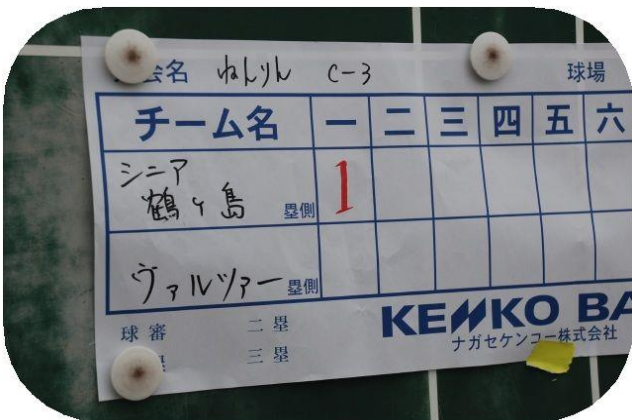 会名 ねんりん C-3 球場
チーム名 一 二 三 四 五 六
シニア
鶴ヶ島 塁側 1
ヴァルツァー 塁側
球審 二塁
三塁
KENKO BA
ナガセケンコー株式会社